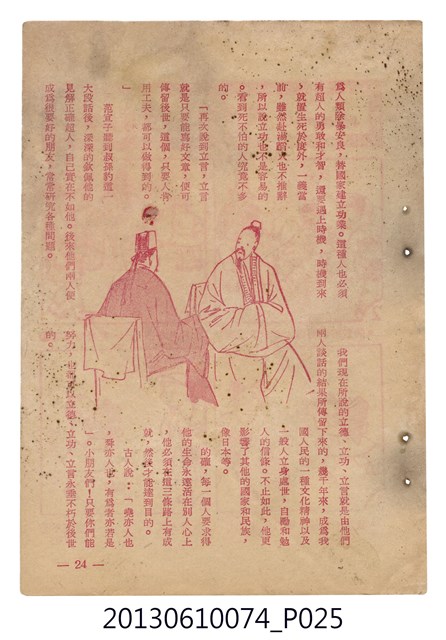 為人類除暴安良，替國家建立功業。這種人也必須
有超人的勇敢和才智，還要遇上時機，時機到來
，就置生死於度外，一義當
前，雖然赴湯蹈火也不推辭
，所以說立功也不是容易的
。看到死不怕的人究竟不多
的。
「再次說到立言，立言
就是只要能寫好文章，便可
傳留後世，這個，只要人肯
用工夫，都可以做得到的。
」
范宣子聽到叔孫豹這一
大段話後，深深的欽佩他的
見解正確超人，自己實在不如他。後來他們兩人便
成為極要好的朋友，常常研究各種問題。
我們現在所說的立德、立功、立言就是由他們
兩人談話的結果所傳留下來的，幾千年來，成為我
國人民的一種文化精神以及
一般人立身處世，自勵和勉
人的信條。不止如此，他更
影響了其他的國家和民族，
像日本等。
的確，每一個人要求得
他的生命永遠活在別人心上
，他必須在這三條路上有成
就，然後才能達到目的。
古人說：「堯亦人也
，舜亦人也，有為者亦若是
」。小朋友們！只要你們能
努力，也會成立德、立功、立言永垂不朽於後世
的。
— 24 —
20130610074_P025